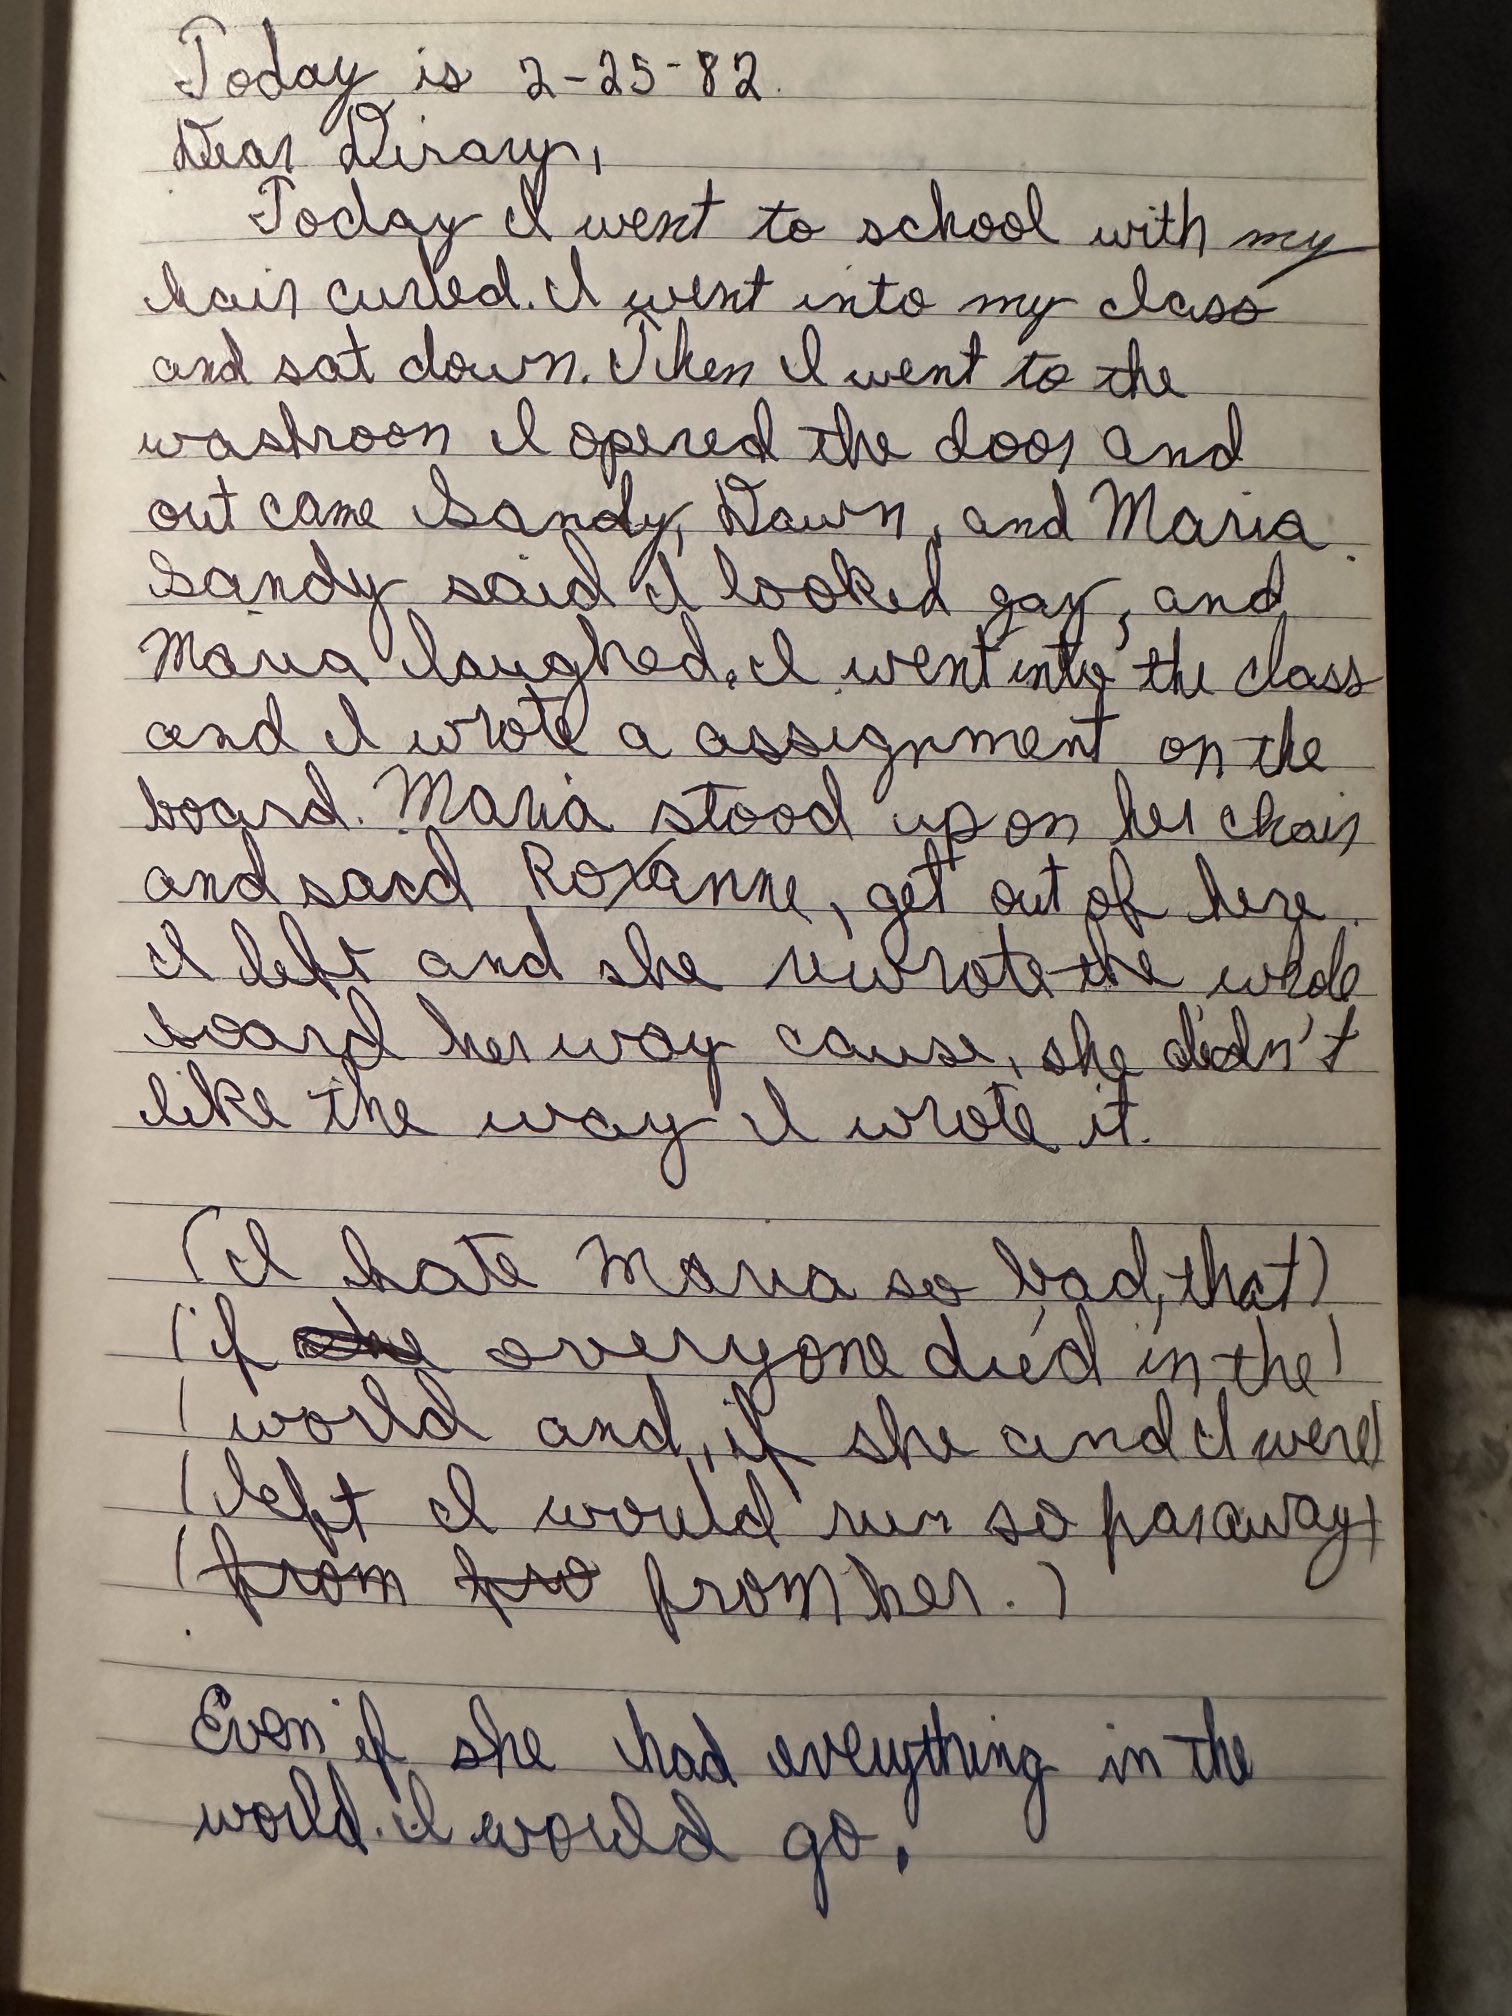 Today is 2-25-82.
Dear Dirary,
Today I went to school with my
hair curled. I went into my class
and sat down. Then I went to the
washroon I opened the door and
out came Sandy, Dawn, and Maria.
Sandy said I looked gay, and
Maria laughed. I went into the class
and I wrote a assignment on the
board. Maria stood up on her chair
and said Roxanne, get out of here.
I left and she rewrote the whole
board her way cause, she didn't
like the way I wrote it.
(I hate Maria so bad, that)
(if she everyone died in the)
(world and, if she and I were)
(left I would run so far away)
(from fro from her.)
Even if she had everything in the
world. I would go.